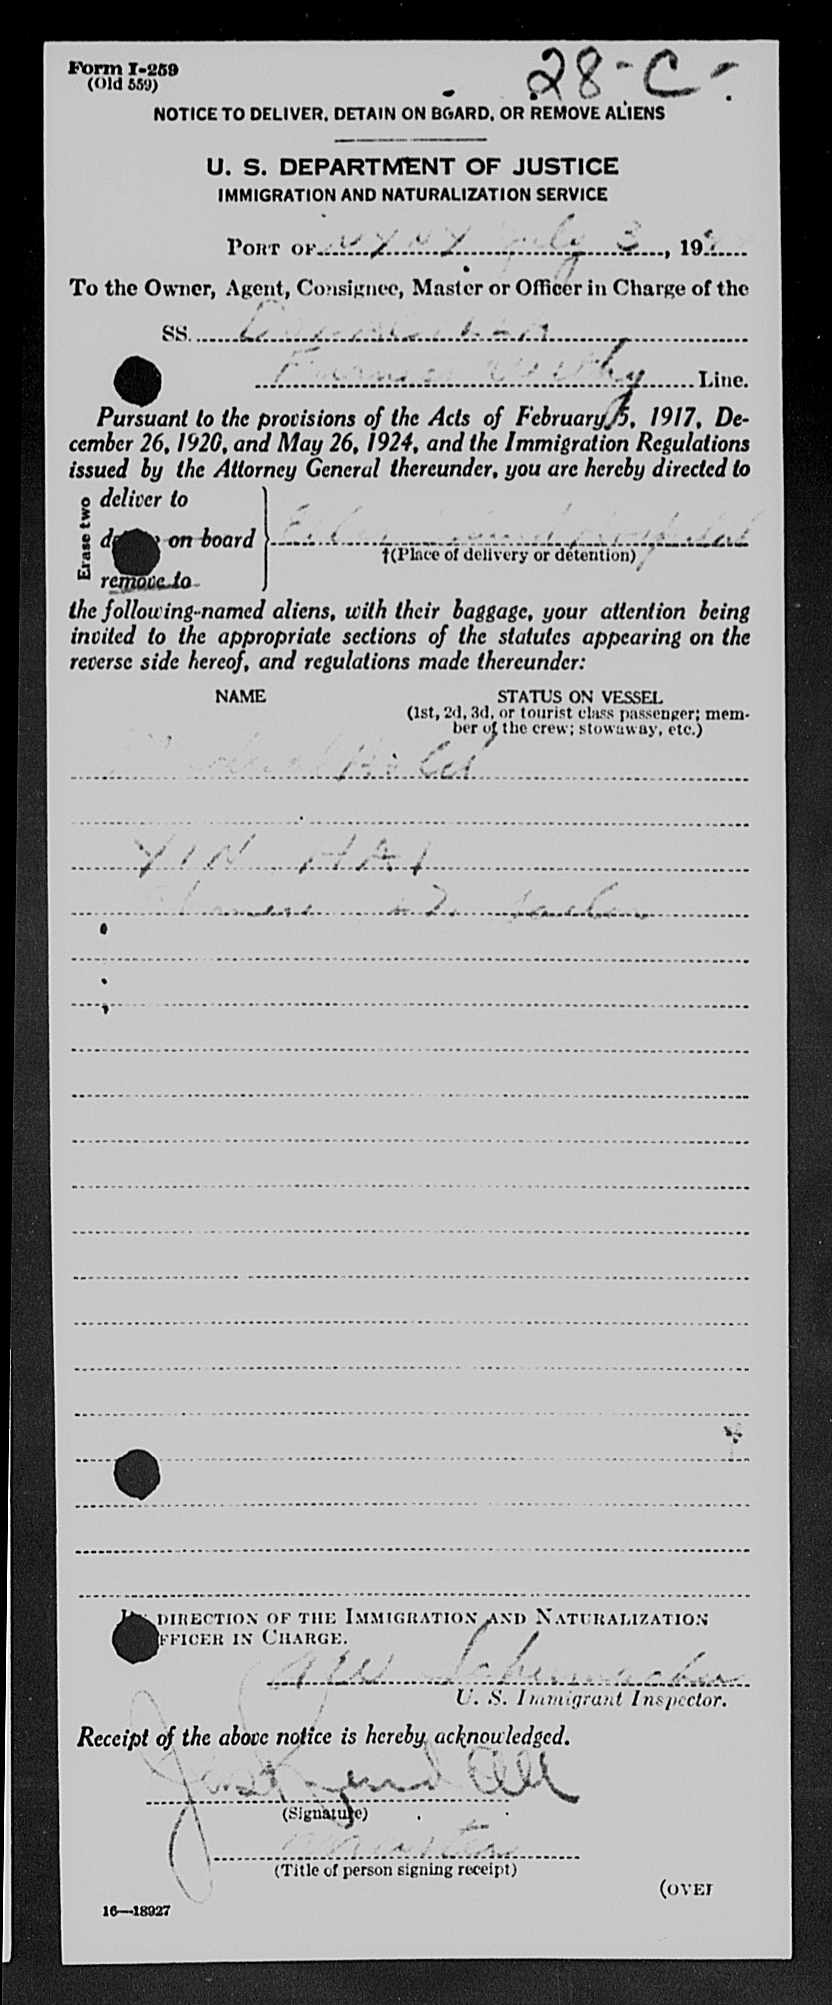 Form I-259
(Old 559)
28-C.
NOTICE TO DELIVER, DETAIN ON BOARD, OR REMOVE ALIENS
U. S. DEPARTMENT OF JUSTICE
IMMIGRATION AND NATURALIZATION SERVICE
PORT OF NY NY July 3, 19
To the Owner, Agent, Consignee, Master or Officer in Charge of the
SS.
Furness Withy Line.
Pursuant to the provisions of the Acts of February 5, 1917, De-
cember 26, 1920, and May 26, 1924, and the Immigration Regulations
issued by the Attorney General thereunder, you are hereby directed to
Erase two
deliver to
on board
remove to
Ellis Island Hospital
†(Place of delivery or detention)
the following-named aliens, with their baggage, your attention being
invited to the appropriate sections of the statutes appearing on the
reverse side hereof, and regulations made thereunder:
NAME STATUS ON VESSEL
(1st, 2d, 3d, or tourist class passenger; mem-
ber of the crew; stowaway, etc.)
Medical Hold
YIN HAI
Chinese 27 sailor
BY DIRECTION OF THE IMMIGRATION AND NATURALIZATION
OFFICER IN CHARGE.
Schumacher
U. S. Immigrant Inspector.
Receipt of the above notice is hereby acknowledged.
(Signature)
Master
(Title of person signing receipt)
(OVER
16—18927